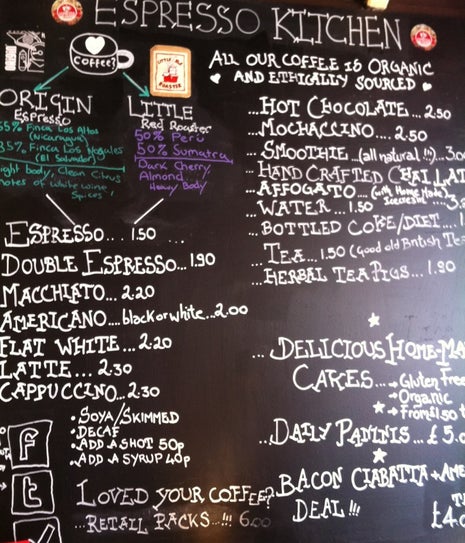 ESPRESSO KITCHEN
Coffee?
ALL OUR COFFEE IS ORGANIC
AND ETHICALLY SOURCED
ORIGIN
Espresso
65% Finca Los Altos
(Nicaragua)
35% Finca Los Nogales
(El Salvador)
Light Body, Clean Citrus
notes of white wine,
Spices
LITTLE
Red Roaster
50% Peru
50% Sumatra
Dark Cherry
Almond
Heavy Body
ESPRESSO... 1.50 ...
DOUBLE ESPRESSO... 1.90
MACCHIATO... 2.20
AMERICANO....black or white...2.00
FLAT WHITE... 2.20
LATTE... 2.30
CAPPUCCINO...2.30
• SOYA/SKIMMED
• DECAF
• ADD A SHOT 50p
• ADD A SYRUP 40p
LOVED YOUR COFFEE?
...RETAIL PACKS...!!! 6.00
f
t
...HOT CHOCOLATE... 2.50
...MOCHACCINO... 2.50
...SMOOTHIE...(all natural!!)...
...HAND CRAFTED CHAI LAT
...AFFOGATO...(with Home Made
Icecream)
...WATER... 1.50
...BOTTLED COKE/DIET...
...TEA...1.50 (Good old British Tea
...HERBAL TEA PIGS... 1.90
... DELICIOUS HOME-MA
CAKES... Gluten free
Organic
From £1.50
...DAILY PANINIS... £5.0
BACON CIABATTA + AME
DEAL!!!
£4.